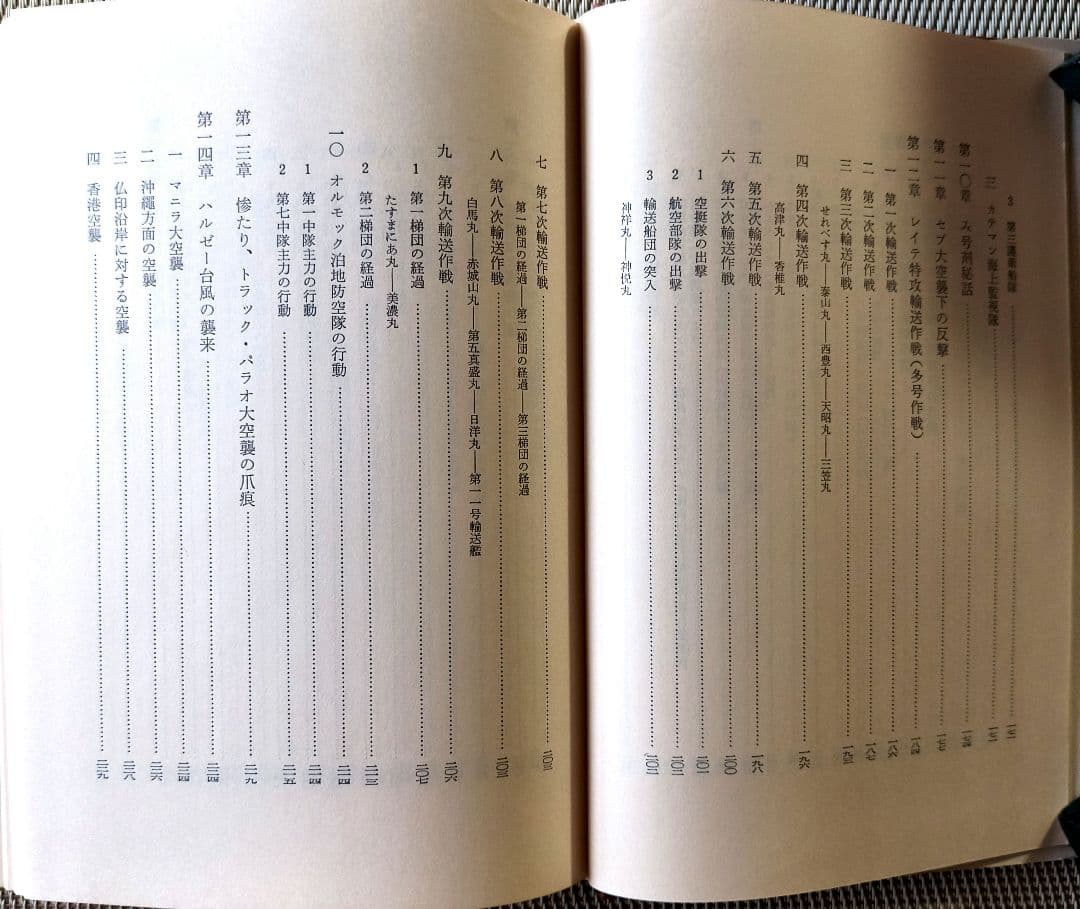 3 第三護衛船隊……一七一
三 カテマン海上監視隊……一七二
第一〇章 み号剤秘話……一七四
第一一章 セブ大空襲下の反撃……一七七
第一二章 レイテ特攻輸送作戦(多号作戦)……一八四
一 第一次輸送作戦……一八六
二 第二次輸送作戦……一八七
三 第三次輸送作戦……一九三
せれべす丸――泰山丸――西豊丸――天昭丸――三笠丸
四 第四次輸送作戦……一九六
高津丸――香椎丸
五 第五次輸送作戦……一九八
六 第六次輸送作戦……二〇〇
1 空挺隊の出撃……二〇一
2 航空部隊の出撃……二〇二
3 輸送船団の突入……二〇二
神祥丸――神悦丸
七 第七次輸送作戦……二〇三
第一梯団の経過――第二梯団の経過――第三梯団の経過
八 第八次輸送作戦……二〇三
白馬丸――赤城山丸――第五真盛丸――日洋丸――第一一号輸送艦
九 第九次輸送作戦……二〇六
1 第一梯団の経過……二〇七
たすまにあ丸――美濃丸
2 第二梯団の経過……二一三
一〇 オルモック泊地防空隊の行動……二一四
1 第一中隊主力の行動……二一四
2 第七中隊主力の行動……二一五
第一三章 惨たり、トラック・パラオ大空襲の爪痕……二一九
第一四章 ハルゼー台風の襲来……二二四
一 マニラ大空襲……二二四
二 沖縄方面の空襲……二二六
三 仏印沿岸に対する空襲……二二八
四 香港空襲……二二九